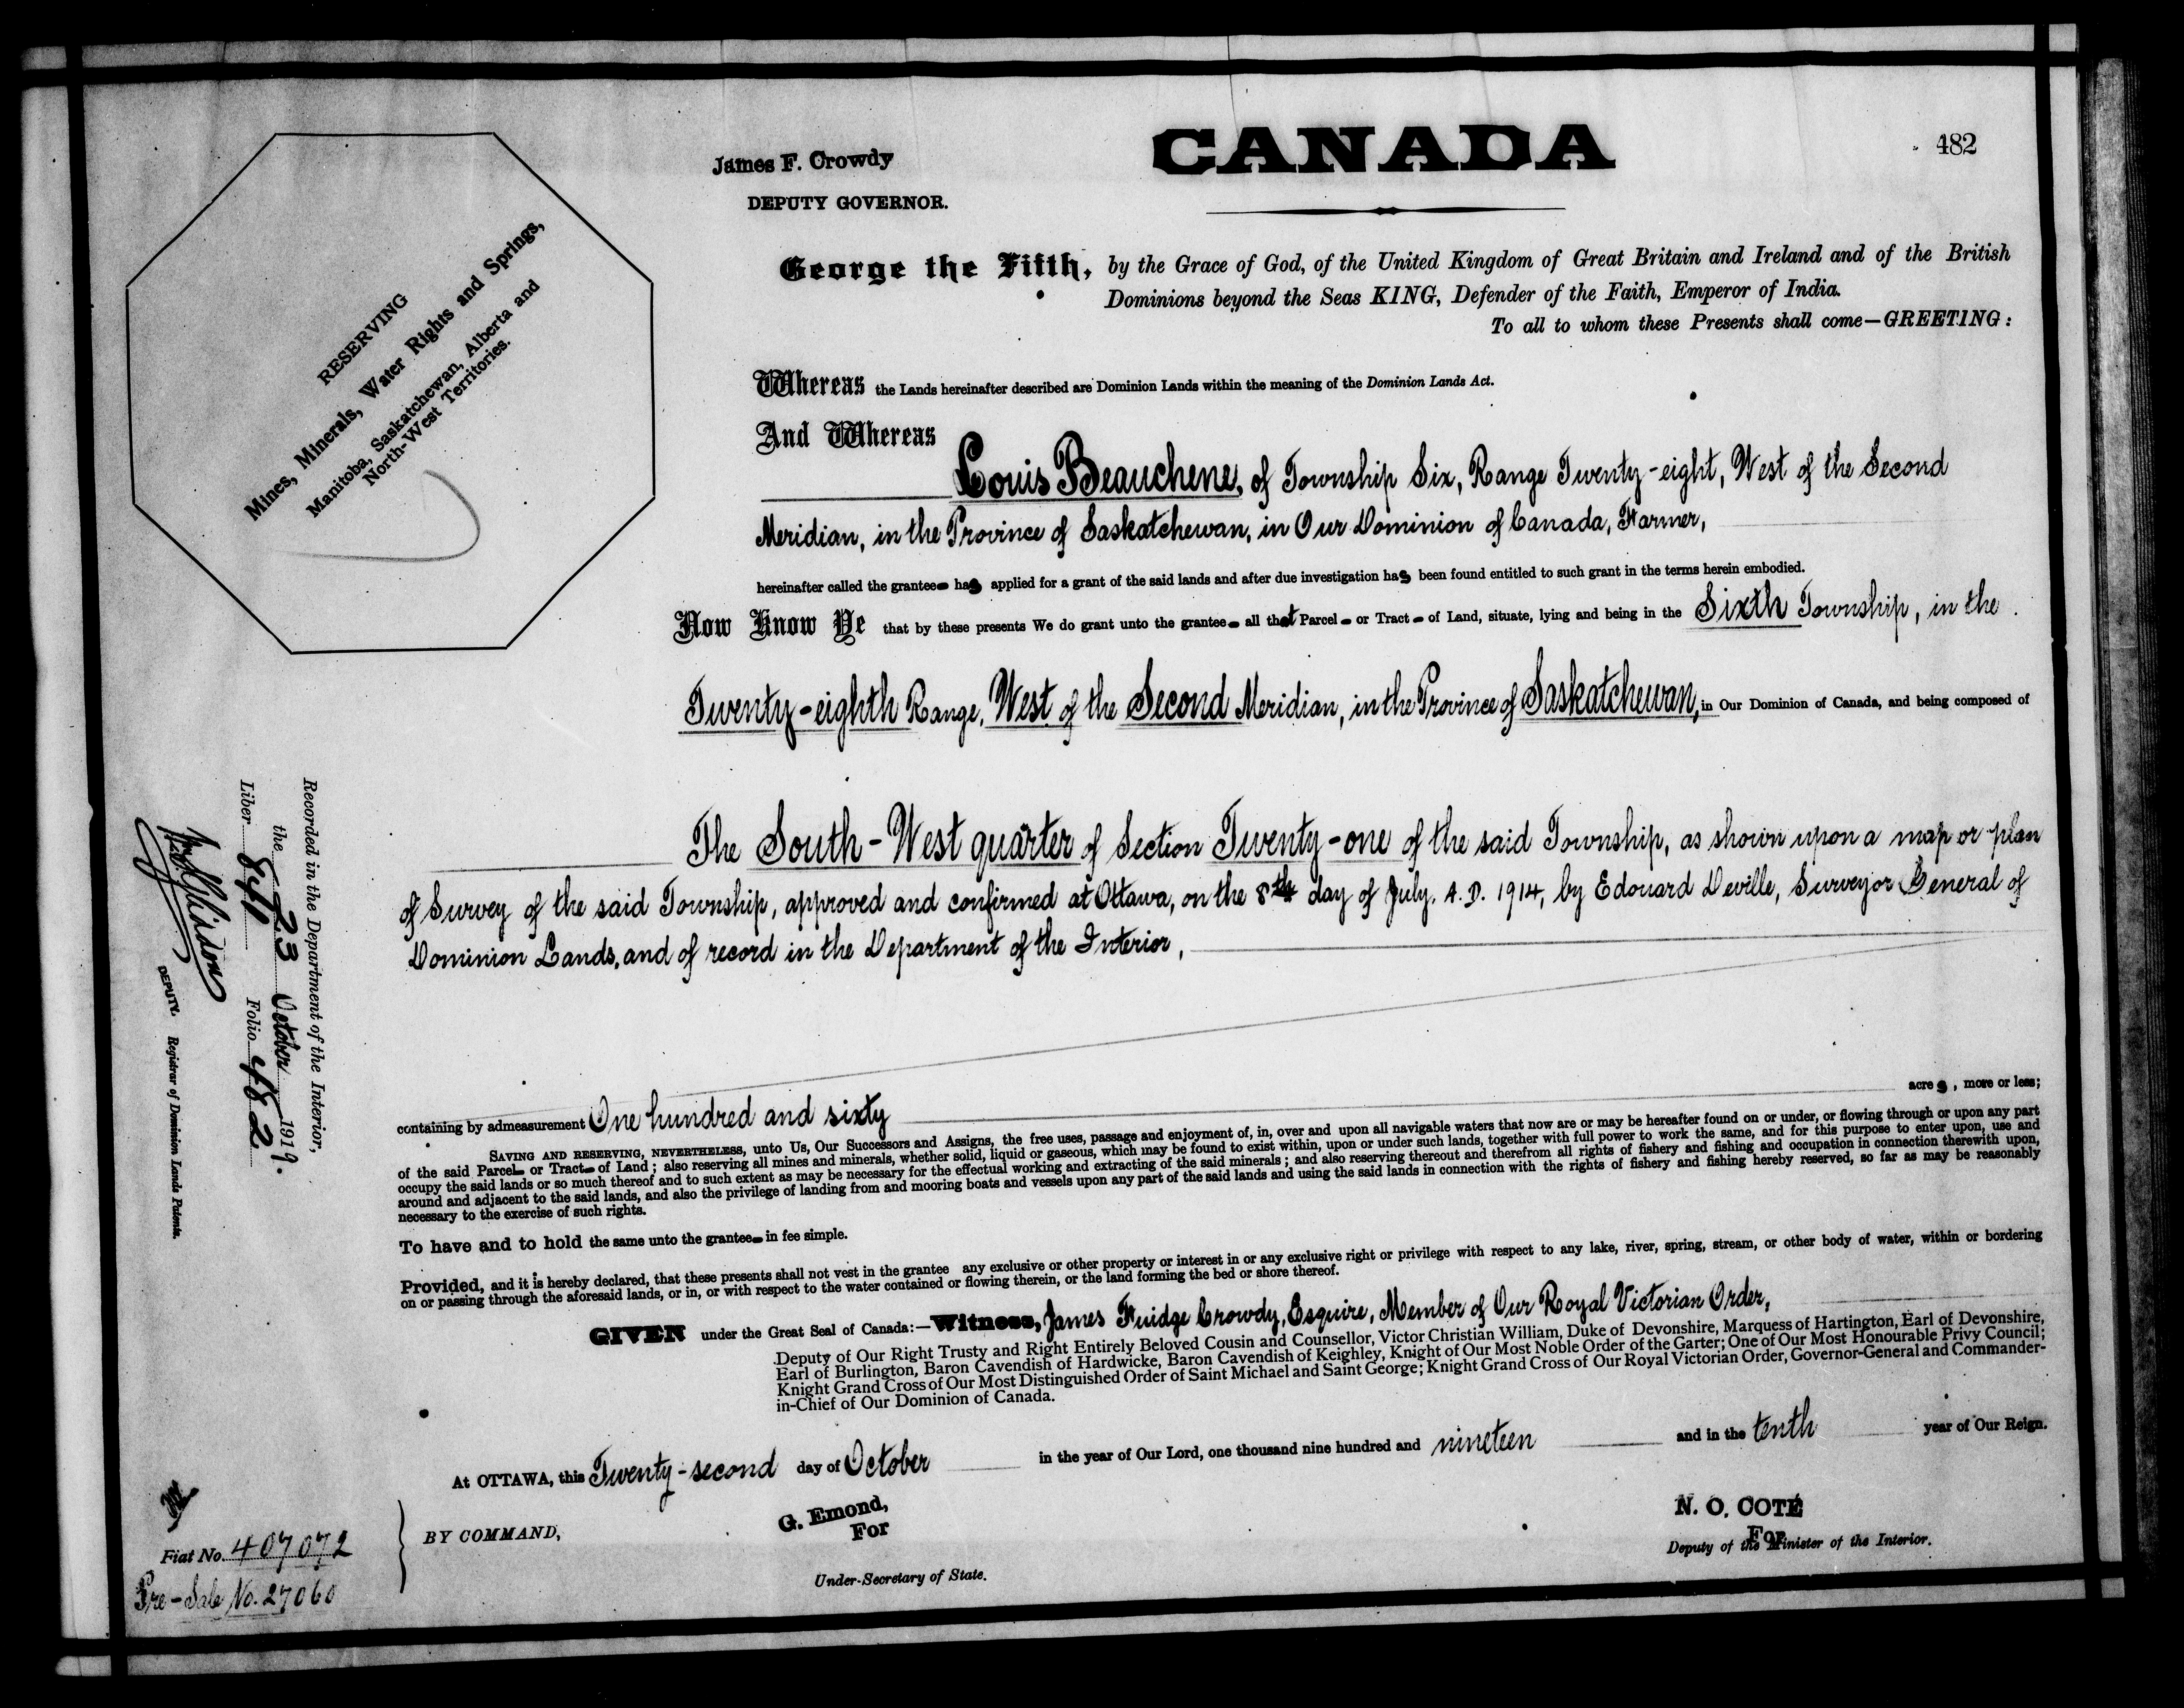 CANADA
482
James F. Crowdy
DEPUTY GOVERNOR.
RESERVING
Mines, Minerals, Water Rights and Springs,
Manitoba, Saskatchewan, Alberta and
North-West Territories.
George the Fifth, by the Grace of God, of the United Kingdom of Great Britain and Ireland and of the British
Dominions beyond the Seas KING, Defender of the Faith, Emperor of India.
To all to whom these Presents shall come—GREETING:
Whereas the Lands hereinafter described are Dominion Lands within the meaning of the Dominion Lands Act.
And Whereas
Louis Beauchene, of Township Six, Range Twenty-eight, West of the Second
Meridian, in the Province of Saskatchewan, in Our Dominion of Canada, Farmer,
hereinafter called the grantee has applied for a grant of the said lands and after due investigation has been found entitled to such grant in the terms herein embodied.
Now Know Ye that by these presents We do grant unto the grantee all that Parcel or Tract of Land, situate, lying and being in the Sixth Township, in the
Twenty-eighth Range, West of the Second Meridian, in the Province of Saskatchewan, in Our Dominion of Canada, and being composed of
The South-West quarter of Section Twenty-one of the said Township, as shown upon a map or plan
of Survey of the said Township, approved and confirmed at Ottawa, on the 8th day of July, A.D. 1914, by Edouard Deville, Surveyor General of
Dominion Lands, and of record in the Department of the Interior,
containing by admeasurement One hundred and sixty acres, more or less;
SAVING AND RESERVING, NEVERTHELESS, unto Us, Our Successors and Assigns, the free uses, passage and enjoyment of, in, over and upon all navigable waters that now are or may be hereafter found on or under, or flowing through or upon any part
of the said Parcel or Tract of Land; also reserving all mines and minerals, whether solid, liquid or gaseous, which may be found to exist within, upon or under such lands, together with full power to work the same, and for this purpose to enter upon, use and
occupy the said lands or so much thereof and to such extent as may be necessary for the effectual working and extracting of the said minerals; and also reserving thereout and therefrom all rights of fishery and fishing and occupation in connection therewith upon,
around and adjacent to the said lands, and also the privilege of landing from and mooring boats and vessels upon any part of the said lands and using the said lands in connection with the rights of fishery and fishing hereby reserved, so far as may be reasonably
necessary to the exercise of such rights.
To have and to hold the same unto the grantee in fee simple.
Provided, and it is hereby declared, that these presents shall not vest in the grantee any exclusive or other property or interest in or any exclusive right or privilege with respect to any lake, river, spring, stream, or other body of water, within or bordering
on or passing through the aforesaid lands, or in, or with respect to the water contained or flowing therein, or the land forming the bed or shore thereof.
GIVEN under the Great Seal of Canada:—Witness, James Fuidge Crowdy, Esquire, Member of Our Royal Victorian Order,
Deputy of Our Right Trusty and Right Entirely Beloved Cousin and Counsellor, Victor Christian William, Duke of Devonshire, Marquess of Hartington, Earl of Devonshire,
Earl of Burlington, Baron Cavendish of Hardwicke, Baron Cavendish of Keighley, Knight of Our Most Noble Order of the Garter; One of Our Most Honourable Privy Council;
Knight Grand Cross of Our Most Distinguished Order of Saint Michael and Saint George; Knight Grand Cross of Our Royal Victorian Order, Governor-General and Commander-
in-Chief of Our Dominion of Canada.
At OTTAWA, this Twenty-second day of October in the year of Our Lord, one thousand nine hundred and nineteen and in the tenth year of Our Reign.
BY COMMAND,
G. Emond,
For
Under-Secretary of State.
N. O. COTÉ
For
Deputy of the Minister of the Interior.
Recorded in the Department of the Interior,
the 23 October 1919.
Liber 841 Folio 482
DEPUTY. Registrar of Dominion Lands Patents.
Fiat No. 407072
Pre-Sale No. 27060